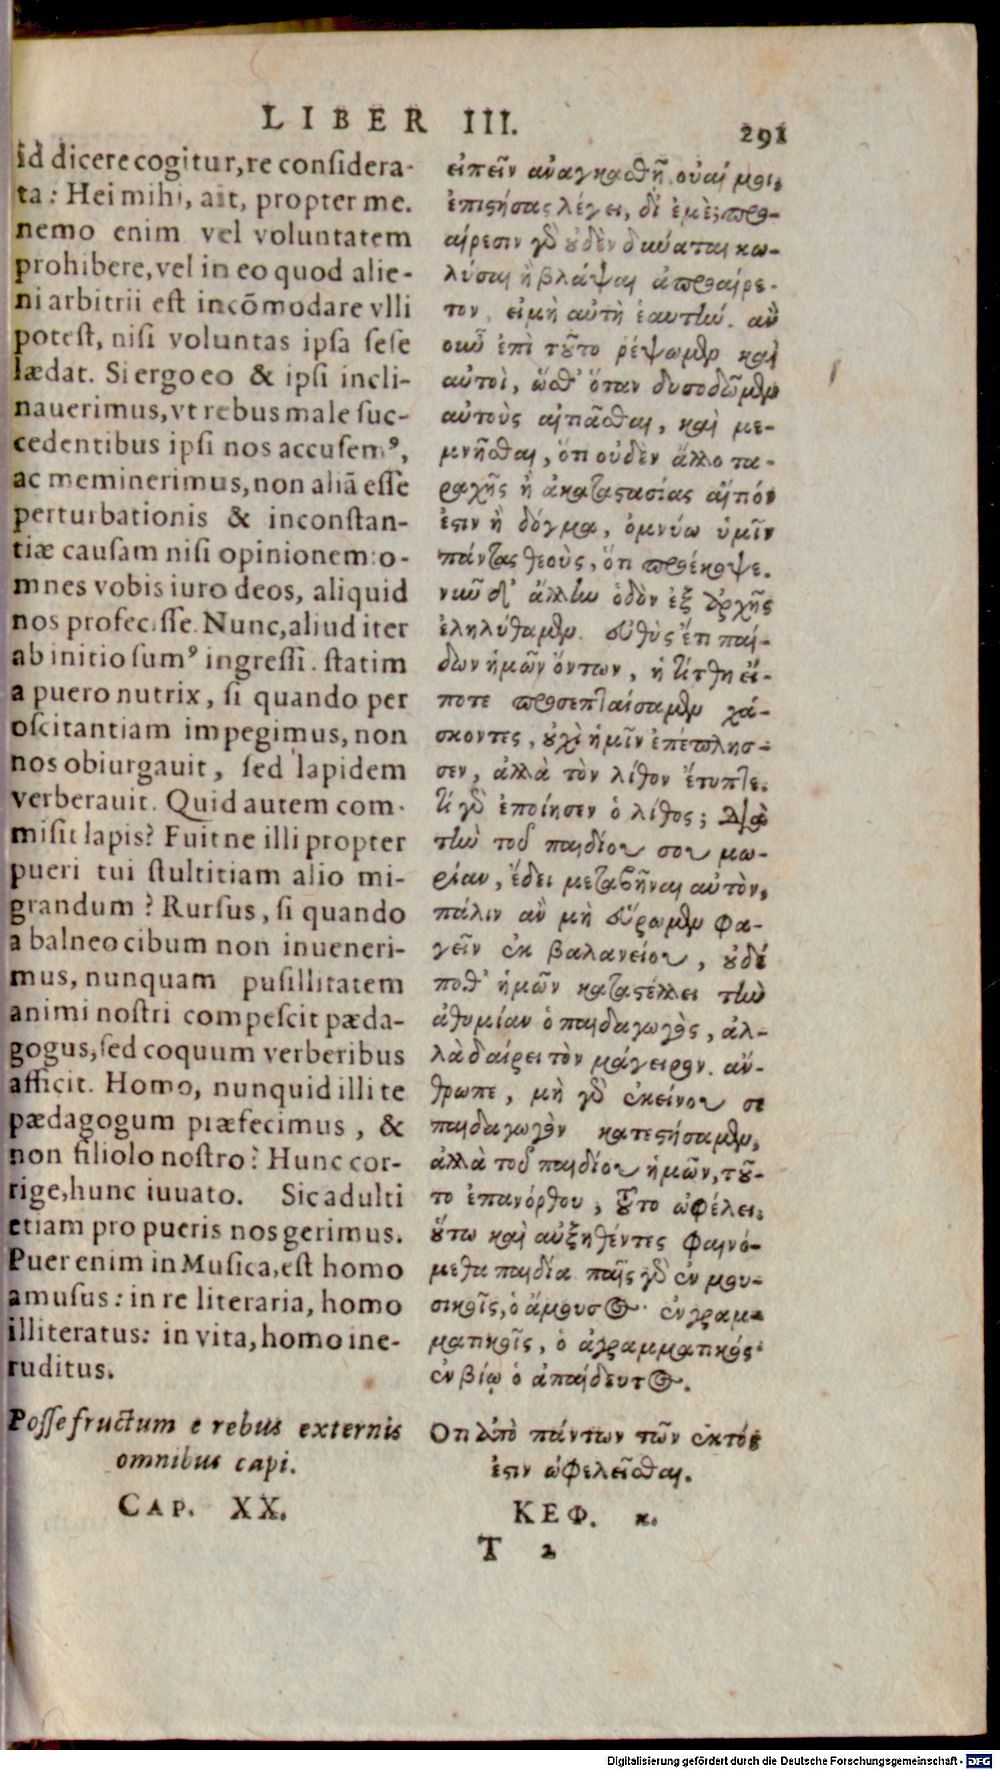 LIBER III. 291
id dicere cogitur, re considera-
ta: Hei mihi, ait, propter me.
nemo enim vel voluntatem
prohibere, vel in eo quod alie-
ni arbitrii est incõmodare vlli
potest, nisi voluntas ipsa sese
lædat. Si ergo eo & ipsi incli-
nauerimus, vt rebus male suc-
cedentibus ipsi nos accusemꝰ,
ac meminerimus, non aliã esse
perturbationis & inconstan-
tiæ causam nisi opinionem: o-
mnes vobis iuro deos, aliquid
nos profecisse. Nunc, aliud iter
ab initio sumꝰ ingressi. statim
a puero nutrix, si quando per
oscitantiam impegimus, non
nos obiurgauit, sed lapidem
verberauit. Quid autem com-
misit lapis? Fuitne illi propter
pueri tui stultitiam alio mi-
grandum? Rursus, si quando
a balneo cibum non inueneri-
mus, nunquam pusillitatem
animi nostri compescit pæda-
gogus, sed coquum verberibus
afficit. Homo, nunquid illi te
pædagogum præfecimus, &
non filiolo nostro? Hunc cor-
rige, hunc iuuato. Sic adulti
etiam pro pueris nos gerimus.
Puer enim in Musica, est homo
amusus: in re literaria, homo
illiteratus: in vita, homo ine-
ruditus.
Posse fructum e rebus externis
omnibus capi.
CAP. XX.
εἰπεῖν ἀναγκασθῇ, οὐαί μοι,
ἐπιστήσας λέγει, δι' ἐμὲ; προ-
αίρεσιν γὰρ οὐδὲν δύναται κω-
λύσαι ἢ βλάψαι ἀπροαίρε-
τον, εἰ μὴ αὐτὴ ἑαυτήν. ἂν
οὖν ἐπὶ τοῦτο ῥέψωμεν καὶ
αὐτοὶ, ὥσθ' ὅταν δυσοδῶμεν
αὐτοὺς αἰτιᾶσθαι, καὶ με-
μνῆσθαι, ὅτι οὐδὲν ἄλλο τα-
ραχῆς ἢ ἀκαταστασίας αἴτιόν
ἐστιν ἢ δόγμα, ὀμνύω ὑμῖν
πάντας θεοὺς, ὅτι προέκοψε.
νῦν δ' ἄλλην ὁδὸν ἐξ ἀρχῆς
ἐληλύθαμεν. εὐθὺς ἔτι παί-
δων ἡμῶν ὄντων, ἡ τίτθη εἴ-
ποτε προσεπταίσαμεν χά-
σκοντες, οὐχὶ ἡμῖν ἐπέπλησ-
σεν, ἀλλὰ τὸν λίθον ἔτυπτε.
τί γὰρ ἐποίησεν ὁ λίθος; διὰ
τὴν τοῦ παιδίου σου μω-
ρίαν, ἔδει μεταβῆναι αὐτὸν,
πάλιν ἂν μὴ εὕρωμεν φα-
γεῖν ἐκ βαλανείου, οὐδέ
ποθ' ἡμῶν καταστέλλει τὴν
ἀθυμίαν ὁ παιδαγωγὸς, ἀλ-
λὰ δαίρει τὸν μάγειρον. ἄν-
θρωπε, μὴ γὰρ ἐκείνου σε
παιδαγωγὸν κατεστήσαμεν,
ἀλλὰ τοῦ παιδίου ἡμῶν, τοῦ-
το ἐπανόρθου, τοῦτο ὠφέλει.
οὕτω καὶ αὐξηθέντες φαινό-
μεθα παιδία παῖς γὰρ ἐν μου-
σικοῖς, ὁ ἄμουσος· ἐν γραμ-
ματικοῖς, ὁ ἀγραμματικός·
ἐν βίῳ ὁ ἀπαίδευτος.
Ὅτι ἀπὸ πάντων τῶν ἐκτός
ἐστιν ὠφελεῖσθαι.
ΚΕΦ. κ.
T 2
Digitalisierung gefördert durch die Deutsche Forschungsgemeinschaft - DFG